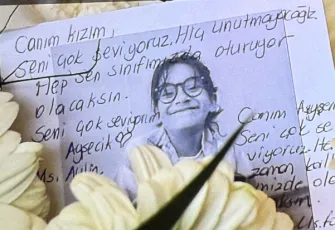 Canım kızım,
Seni çok seviyoruz. Hiç unutmayacağız.
Hep sen sınıfımızda oturuyor
olacaksın.
Seni çok seviyorum
Ayşecik
Ms. Aylin
Canım Ayşem
Seni çok se
viyoruz. He
zaman kal
imizde ola